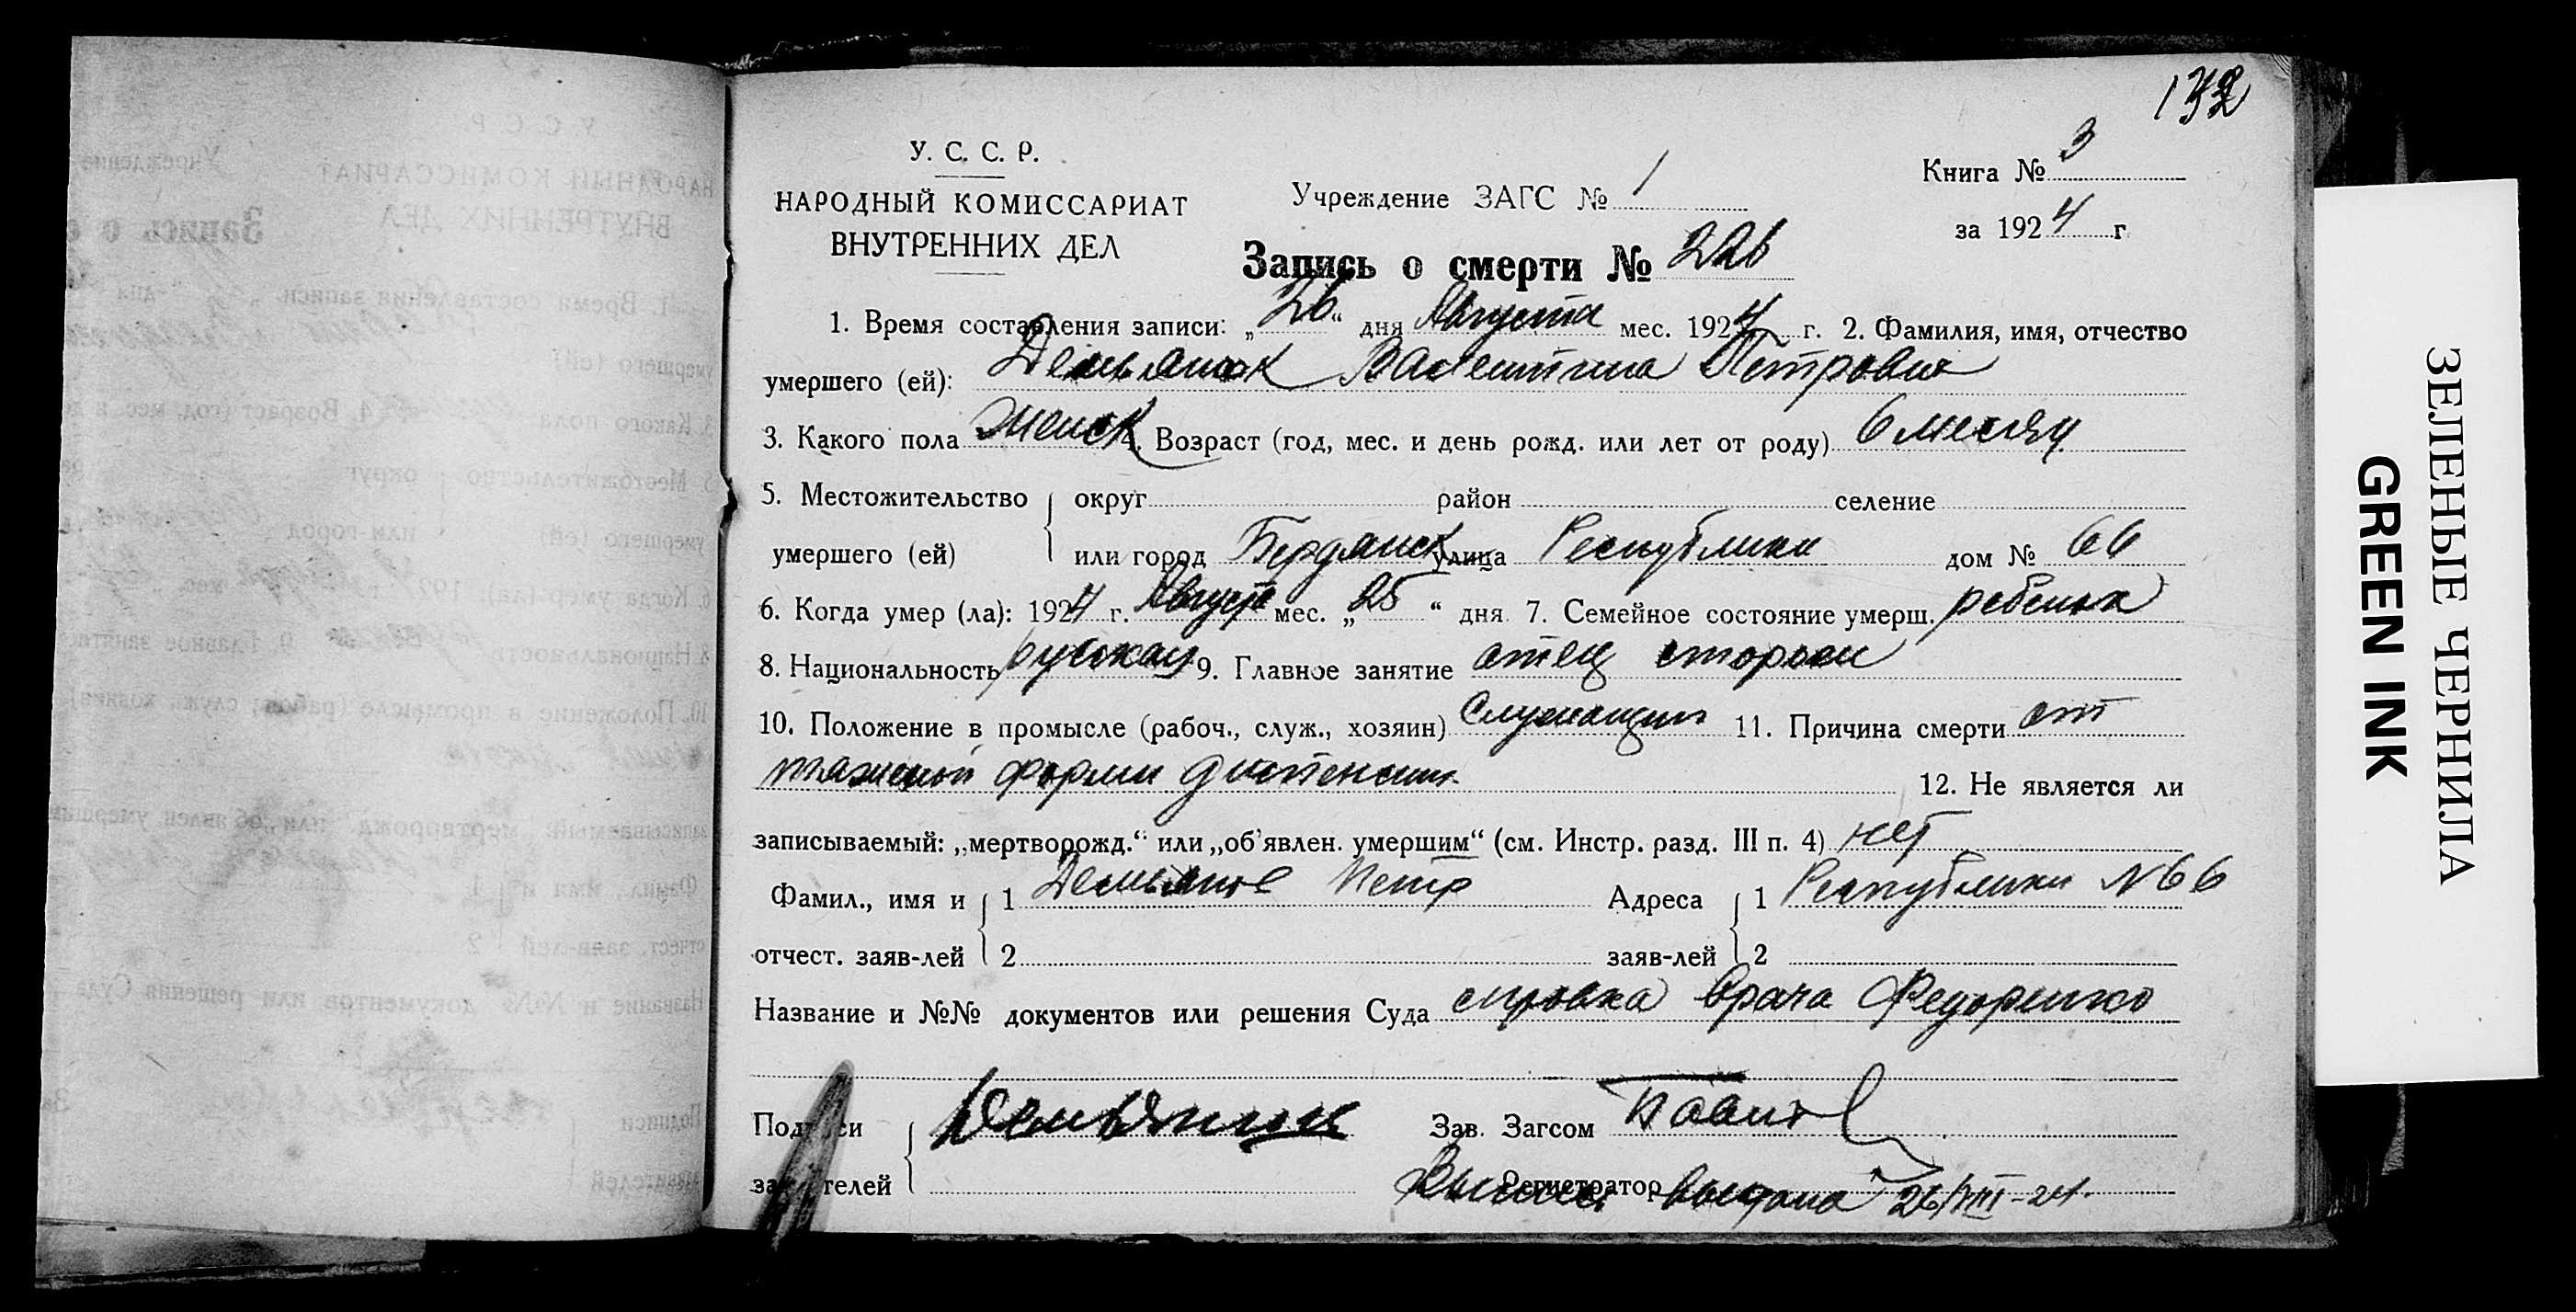 132
У. С. С. Р.
НАРОДНЫЙ КОМИССАРИАТ
ВНУТРЕННИХ ДЕЛ
Учреждение ЗАГС № 1
Книга № 3
за 1924 г
Запись о смерти № 226
1. Время составления записи: „26“ дня Августа мес. 1924 г. 2. Фамилия, имя, отчество
умершего (ей): Демьянок Валентина Петровна
3. Какого пола Женск 4. Возраст (год, мес. и день рожд. или лет от роду) 6 месяц.
5. Местожительство округ район селение
умершего (ей) или город Бердянск улица Республики дом № 66
6. Когда умер (ла): 1924 г. Августа мес. „25“ дня 7. Семейное состояние умерш. ребенок
8. Национальность русская 9. Главное занятие отец сторож
10. Положение в промысле (рабоч., служ., хозяин) Служащий 11. Причина смерти от
тяжелой формы диспенсии 12. Не является ли
записываемый: „мертворожд.“ или „об’явлен. умершим“ (см. Инстр. разд. III п. 4) нет
Фамил., имя и 1 Петр Адреса 1 Республики №66
отчест. заяв-лей 2 заяв-лей 2
Название и №№ документов или решения Суда справка врача Федоренко
Подписи Зав. Загсом
заявителей Регистратор выдана 26/VIII-24.
ЗЕЛЕНЫЕ ЧЕРНИЛА
GREEN INK